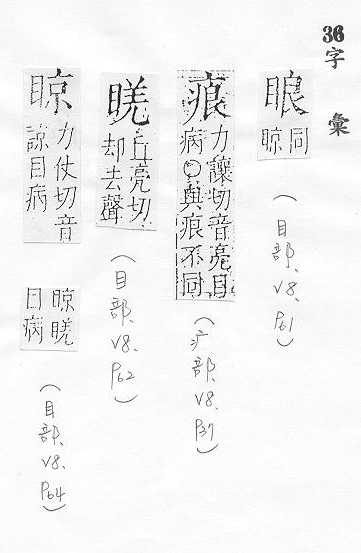 36字 彙
䀶
同
䁁
（目部、V8、P61）
㾗
力讓切音亮目
病○與痕不同
（疒部、V8、P37）
丘亮切
却去聲
（目部、V8、P62）
䁁
力仗切音
諒目病
䁁
目病
（目部、V8、P64）